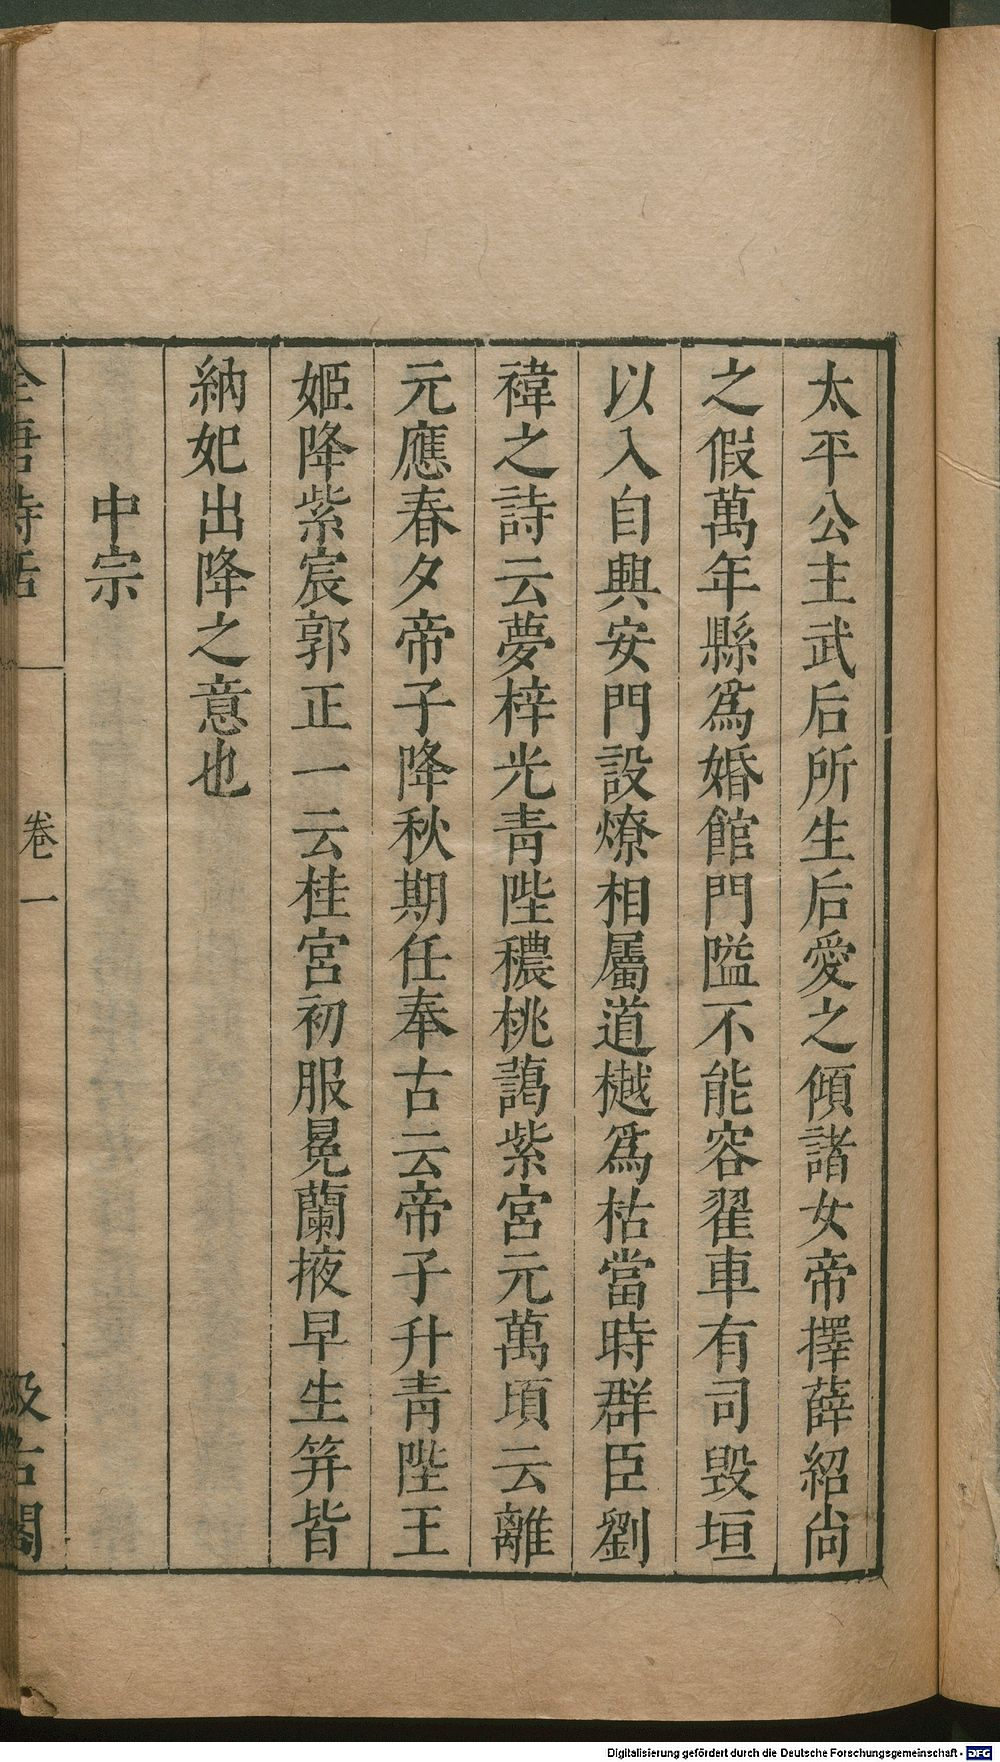 太平公主武后所生后愛之傾諸女帝擇薛紹尚
之假萬年縣爲婚館門隘不能容翟車有司毀垣
以入自興安門設燎相屬道樾爲枯當時群臣劉
褘之詩云夢梓光青陛穠桃藹紫宮元萬頃云離
元應春夕帝子降秋期任奉古云帝子升青陛王
姬降紫宸郭正一云桂宮初服冕蘭掖早生笄皆
納妃出降之意也
中宗
全唐詩話 卷一 汲古閣
Digitalisierung gefördert durch die Deutsche Forschungsgemeinschaft - DFG